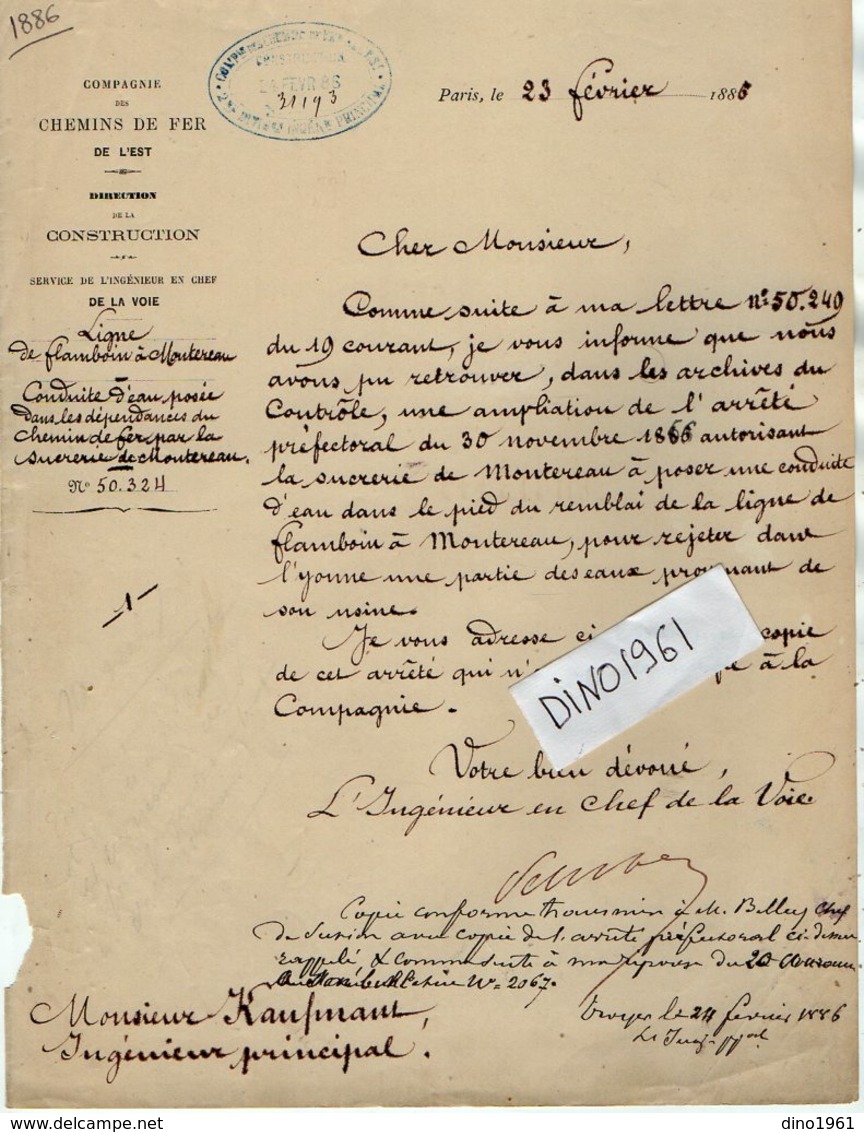 1886
COMPAGNIE
DES
CHEMINS DE FER
DE L'EST
DIRECTION
DE LA
CONSTRUCTION
SERVICE DE L'INGÉNIEUR EN CHEF
DE LA VOIE
Ligne
de flamboin à Montereau
Conduite d'eau posée
dans les dépendances du
chemin de fer par la
sucrerie de Montereau.
Nº 50.324
CONSTRUCTION
FEVR 86
31193
Paris, le 23 février 1886
Cher Monsieur,
Comme suite à ma lettre nº 50.249
du 19 courant, je vous informe que nous
avons pu retrouver, dans les archives du
Contrôle, une ampliation de l'arrêté
préfectoral du 30 novembre 1866 autorisant
la sucrerie de Montereau à poser une conduite
d'eau dans le pied du remblai de la ligne de
flamboin à Montereau, pour rejeter dans
l'Yonne une partie des eaux provenant de
son usine.
Je vous adresse ci copie
de cet arrêté qui n' à la
Compagnie.
DINO1961
Votre bien dévoué,
L'Ingénieur en Chef de la Voie
Copie conforme transmise à M. Chef
de avec copie de l'arrêté préfectoral ci-dessus
rappelé & comme suite à ma réponse du 20 courant
Nº 2067.
Troyes le 24 février 1886
Monsieur Kaufmant,
Ingénieur principal.
dino1961